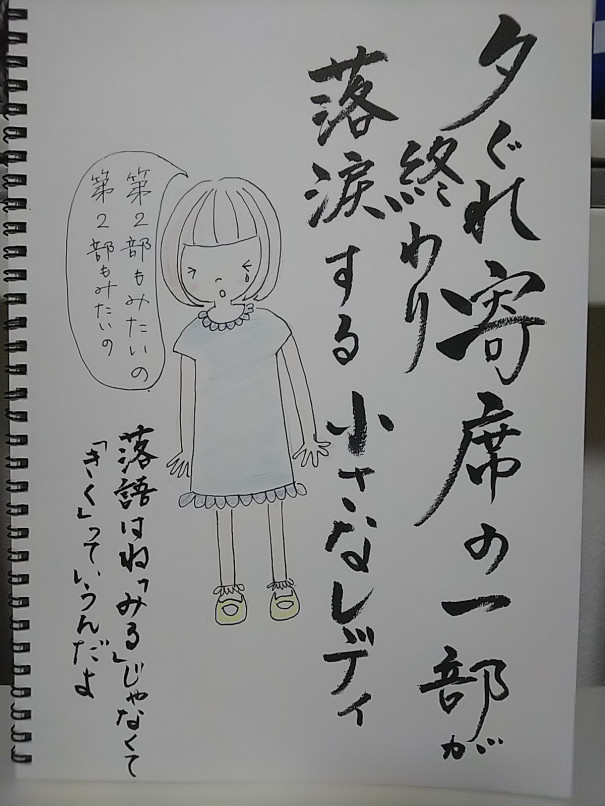 夕ぐれ寄席の一部が
終わり
落涙する小さなレディ
第2部もみたいの
第2部もみたいの
落語はね「みる」じゃなくて
「きく」っていうんだよ